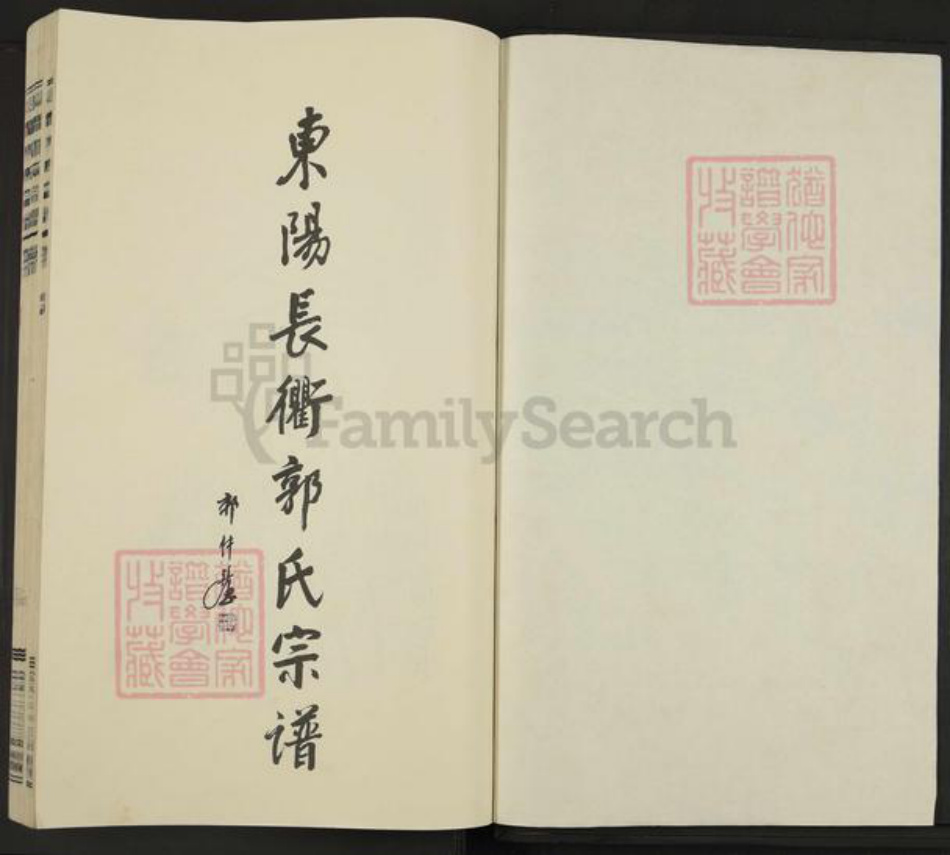 猶他家
譜學會
收藏
東陽長衢郭氏宗谱
郭仲
猶他家
譜學會
收藏
FamilySearch